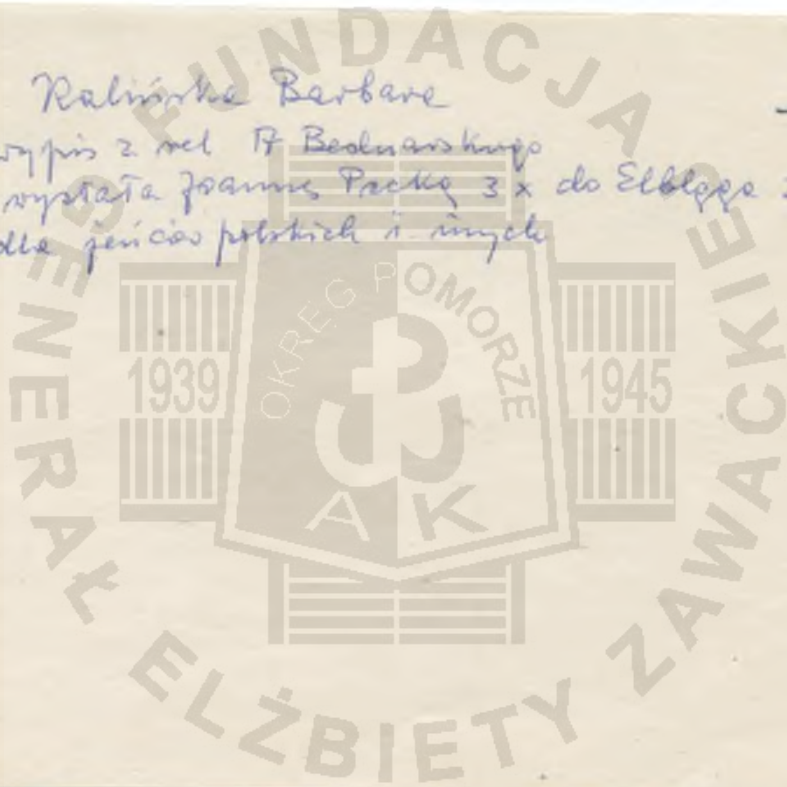 Kalińska Barbara
wypis z rel B Bednarskiego
wysłała Joannę 3 x do Elbląga
dla jeńców polskich i innych
FUNDACJA GENERAŁ ELŻBIETY ZAWACKIEJ
OKRĘG POMORZE
1939 1945
AK